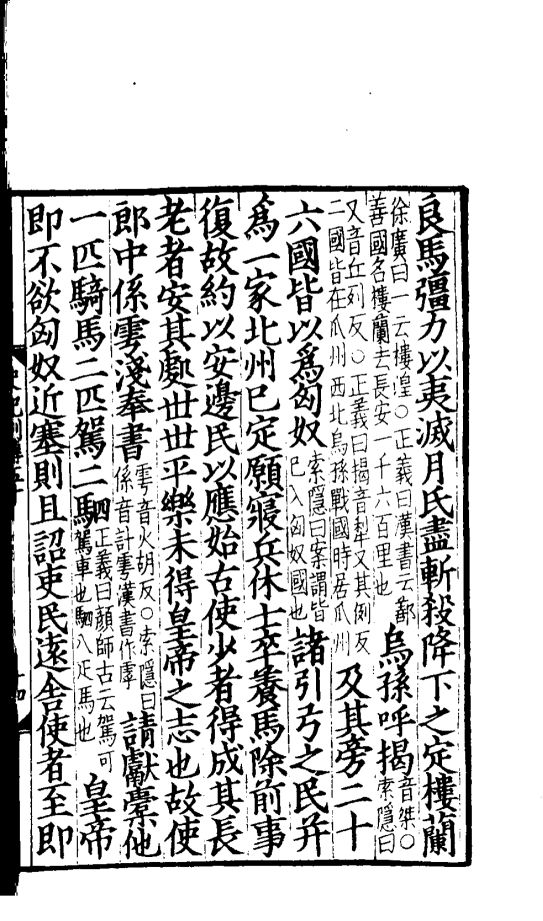 良馬彊力以夷滅月氏盡斬殺降下之定樓蘭
徐廣曰一云樓湟○正義曰漢書云鄯
善國名樓蘭去長安一千六百里也
烏孫呼揭
音桀○
索隱曰
又音丘列反○正義曰揭音犂又其例反
二國皆在瓜州西北烏孫戰國時居瓜州
及其旁二十
六國皆以爲匈奴
索隱曰案謂皆
已入匈奴國也
諸引弓之民并
爲一家北州已定願寢兵休士卒養馬除前事
復故約以安邊民以應始古使少者得成其長
老者安其處世世平樂未得皇帝之志也故使
郎中係雩淺奉書
雩音火胡反○索隱曰
係音計雩漢書作虖
請獻橐他
一匹騎馬二匹駕二駟
正義曰顔師古云駕可
駕車也駟八疋馬也
皇帝
即不欲匈奴近塞則且詔吏民遠舍使者至即